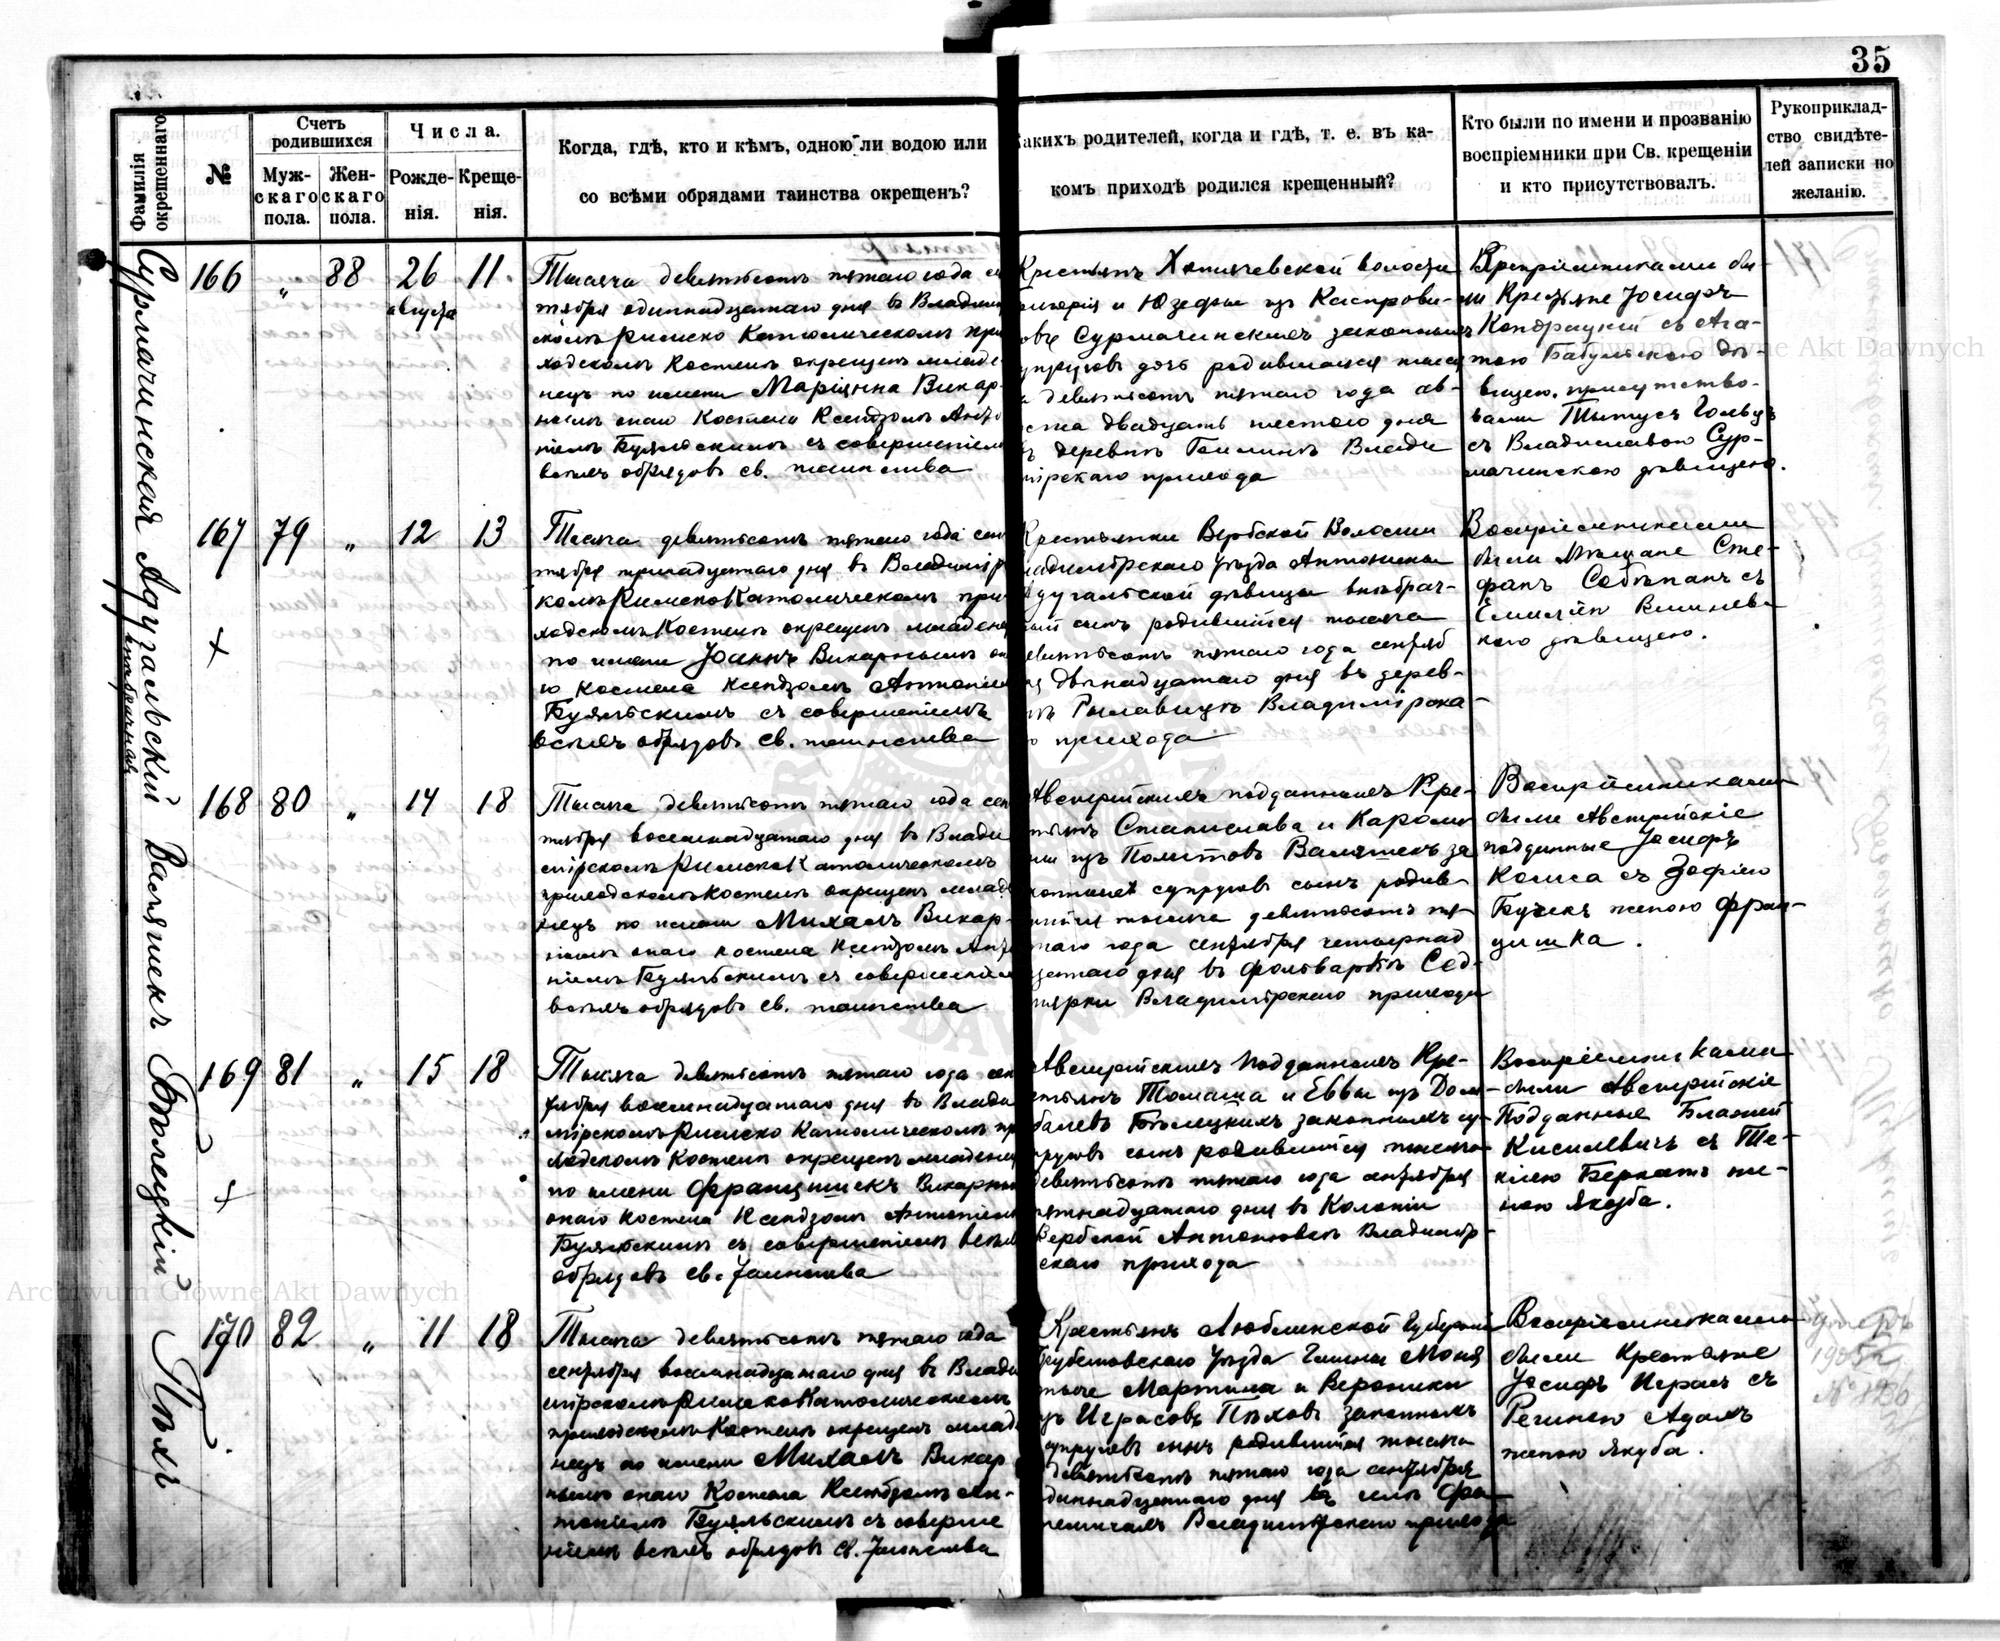 35
Фамилія окрещеннаго.
№
Счетъ родившихся
Муж-
скаго
пола.
Жен-
скаго
пола.
Числа.
Рожде-
нія.
Креще-
нія.
Когда, гдѣ, кто и кѣмъ, одною ли водою или
со всѣми обрядами таинства окрещенъ?
Какихъ родителей, когда и гдѣ, т. е. въ ка-
комъ приходѣ родился крещенный?
Кто были по имени и прозванію
воспріемники при Св. крещеніи
и кто присутствовалъ.
Рукоприклад-
ство свидѣте-
лей записки по
желанію.
Сурмачинская
166 " 88 26 августа 11
Тысяча девятьсотъ пятаго года се
тября одиннадцатаго дня въ Владим
скомъ Римско Католическомъ при
ходскомъ Костелѣ окрещенъ младе
нецъ по имени Марцянна Викар-
нымъ онаго Костела Ксендзомъ Анто
ніемъ Буяльскимъ съ совершеніемъ
всѣхъ обрядовъ св. таинства
Крестьянъ Хотячевской волости
Григорія и Юзефы изъ Каспрови-
овъ Сурмачинскихъ законныхъ
супруговъ дочь родившаяся тыся
а девятьсотъ пятаго года ав-
ста двадцать шестого дня
въ деревнѣ Влади
мірскаго прихода
Воспріемниками бы-
ли Крестьяне Іосифъ
Кондрацкій съ Ага-
тою дѣ-
вицею, присутство-
вали Титусъ Гольцъ
съ Владиславою Сур-
мачинскою дѣвицею.
Адугальскій
внѣбрачная
167 79 " 12 13
Тысяча девятьсотъ пятаго года сен
тября тринадцатаго дня въ Владимір
комъ Римско Католическомъ при
ходскомъ Костелѣ окрещенъ младене
по имени Іоаннъ Викарнымъ он
го Костела Ксендзомъ Антоніем
Буяльскимъ съ совершеніемъ
всѣхъ обрядовъ св. таинства
Крестьянки Вербской Волости
ладимірскаго уѣзда Антонины
Адугальской дѣвицы внѣбрач-
ный сынъ родившійся тысяча
девятьсотъ пятаго года сентяб
ря двѣнадцатаго дня въ дерев-
нѣ Рылавицѣ Владимірска-
го прихода
Воспріемниками
были Мѣщане Сте-
фанъ Собѣпанъ съ
Емиліею Вишнев
кою дѣвицею.
Валяшекъ
168 80 " 14 18
Тысяча девятьсотъ пятаго года сен
тября восемнадцатаго дня въ Влади
мірскомъ Римско Католическомъ
приходскомъ Костелѣ окрещенъ младе
нецъ по имени Михалъ Викар-
нымъ онаго костела Ксендзомъ Анто
ніемъ Буяльскимъ съ совершеніем
всѣхъ обрядовъ св. таинства
Австрійскихъ подданныхъ Кре-
стьянъ Станислава и Кароли
ны изъ Политовъ Валяшекъ за
конныхъ супруговъ сынъ родив-
шійся тысяча девятьсотъ пя-
таго года сентября четырнад
цатаго дня въ фольваркѣ Сед-
мярки Владимірскаго прихода
Воспріемниками
были Австрійскіе
подданные Іосифъ
Колиса съ Зофіею
Бучекъ женою Фран-
цишка.
Бѣлецкій
169 81 " 15 18
Тысяча девятьсотъ пятаго года сен
тября восемнадцатаго дня въ Влади
мірскомъ Римско Католическомъ пр
ходскомъ Костелѣ окрещенъ младенец
по имени Францишекъ Викарным
онаго Костела Ксендзомъ Антоніем
Буяльскимъ съ совершеніемъ всѣх
обрядовъ св. таинства
Австрійскихъ подданныхъ Кре-
стьянъ Томаша и Еввы изъ Дом-
балевъ Бѣлецкихъ законныхъ су-
пруговъ сынъ родившійся тысяча
девятьсотъ пятаго года сентября
пятнадцатаго дня въ Колоніи
Вербской Антоновкѣ Владимір-
скаго прихода
Воспріемниками
были Австрійскіе
Подданные Блажей
Кисилевичъ съ Те-
клею Беркатъ же-
ною Якуба.
Пѣхъ
170 82 " 11 18
Тысяча девятьсотъ пятаго года
сентября восемнадцатаго дня въ Влади
мірскомъ Римско Католическомъ
приходскомъ Костелѣ окрещенъ млад
нецъ по имени Михалъ Викар
нымъ онаго Костела Ксендзомъ Ан-
тоніемъ Буяльскимъ съ соверше
ніемъ всѣхъ обрядовъ св. таинства
Крестьянъ Люблинской Губерніи
Грубешовскаго уѣзда Гмины
Мартина и Вероники
изъ Играсовъ Пѣховъ законныхъ
супруговъ сынъ родившійся тысяча
девятьсотъ пятаго года сентября
одиннадцатаго дня въ селѣ
Владимірскаго прихода
Воспріемниками
были Крестьяне
Іосифъ Играсъ съ
Региною Адамъ
женою Якуба.
Archiwum Główne Akt Dawnych
Archiwum Główne Akt Dawnych